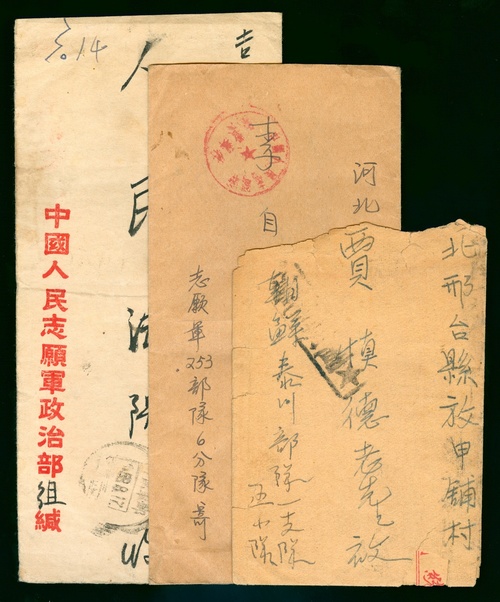 吉
人民法院
收
中國人民志願軍政治部組緘
河北
李
自
志願軍253部隊6分隊寄
北邢台縣放甲鋪村
賈
德老先生放
朝鮮泰川部隊一支隊
五小隊